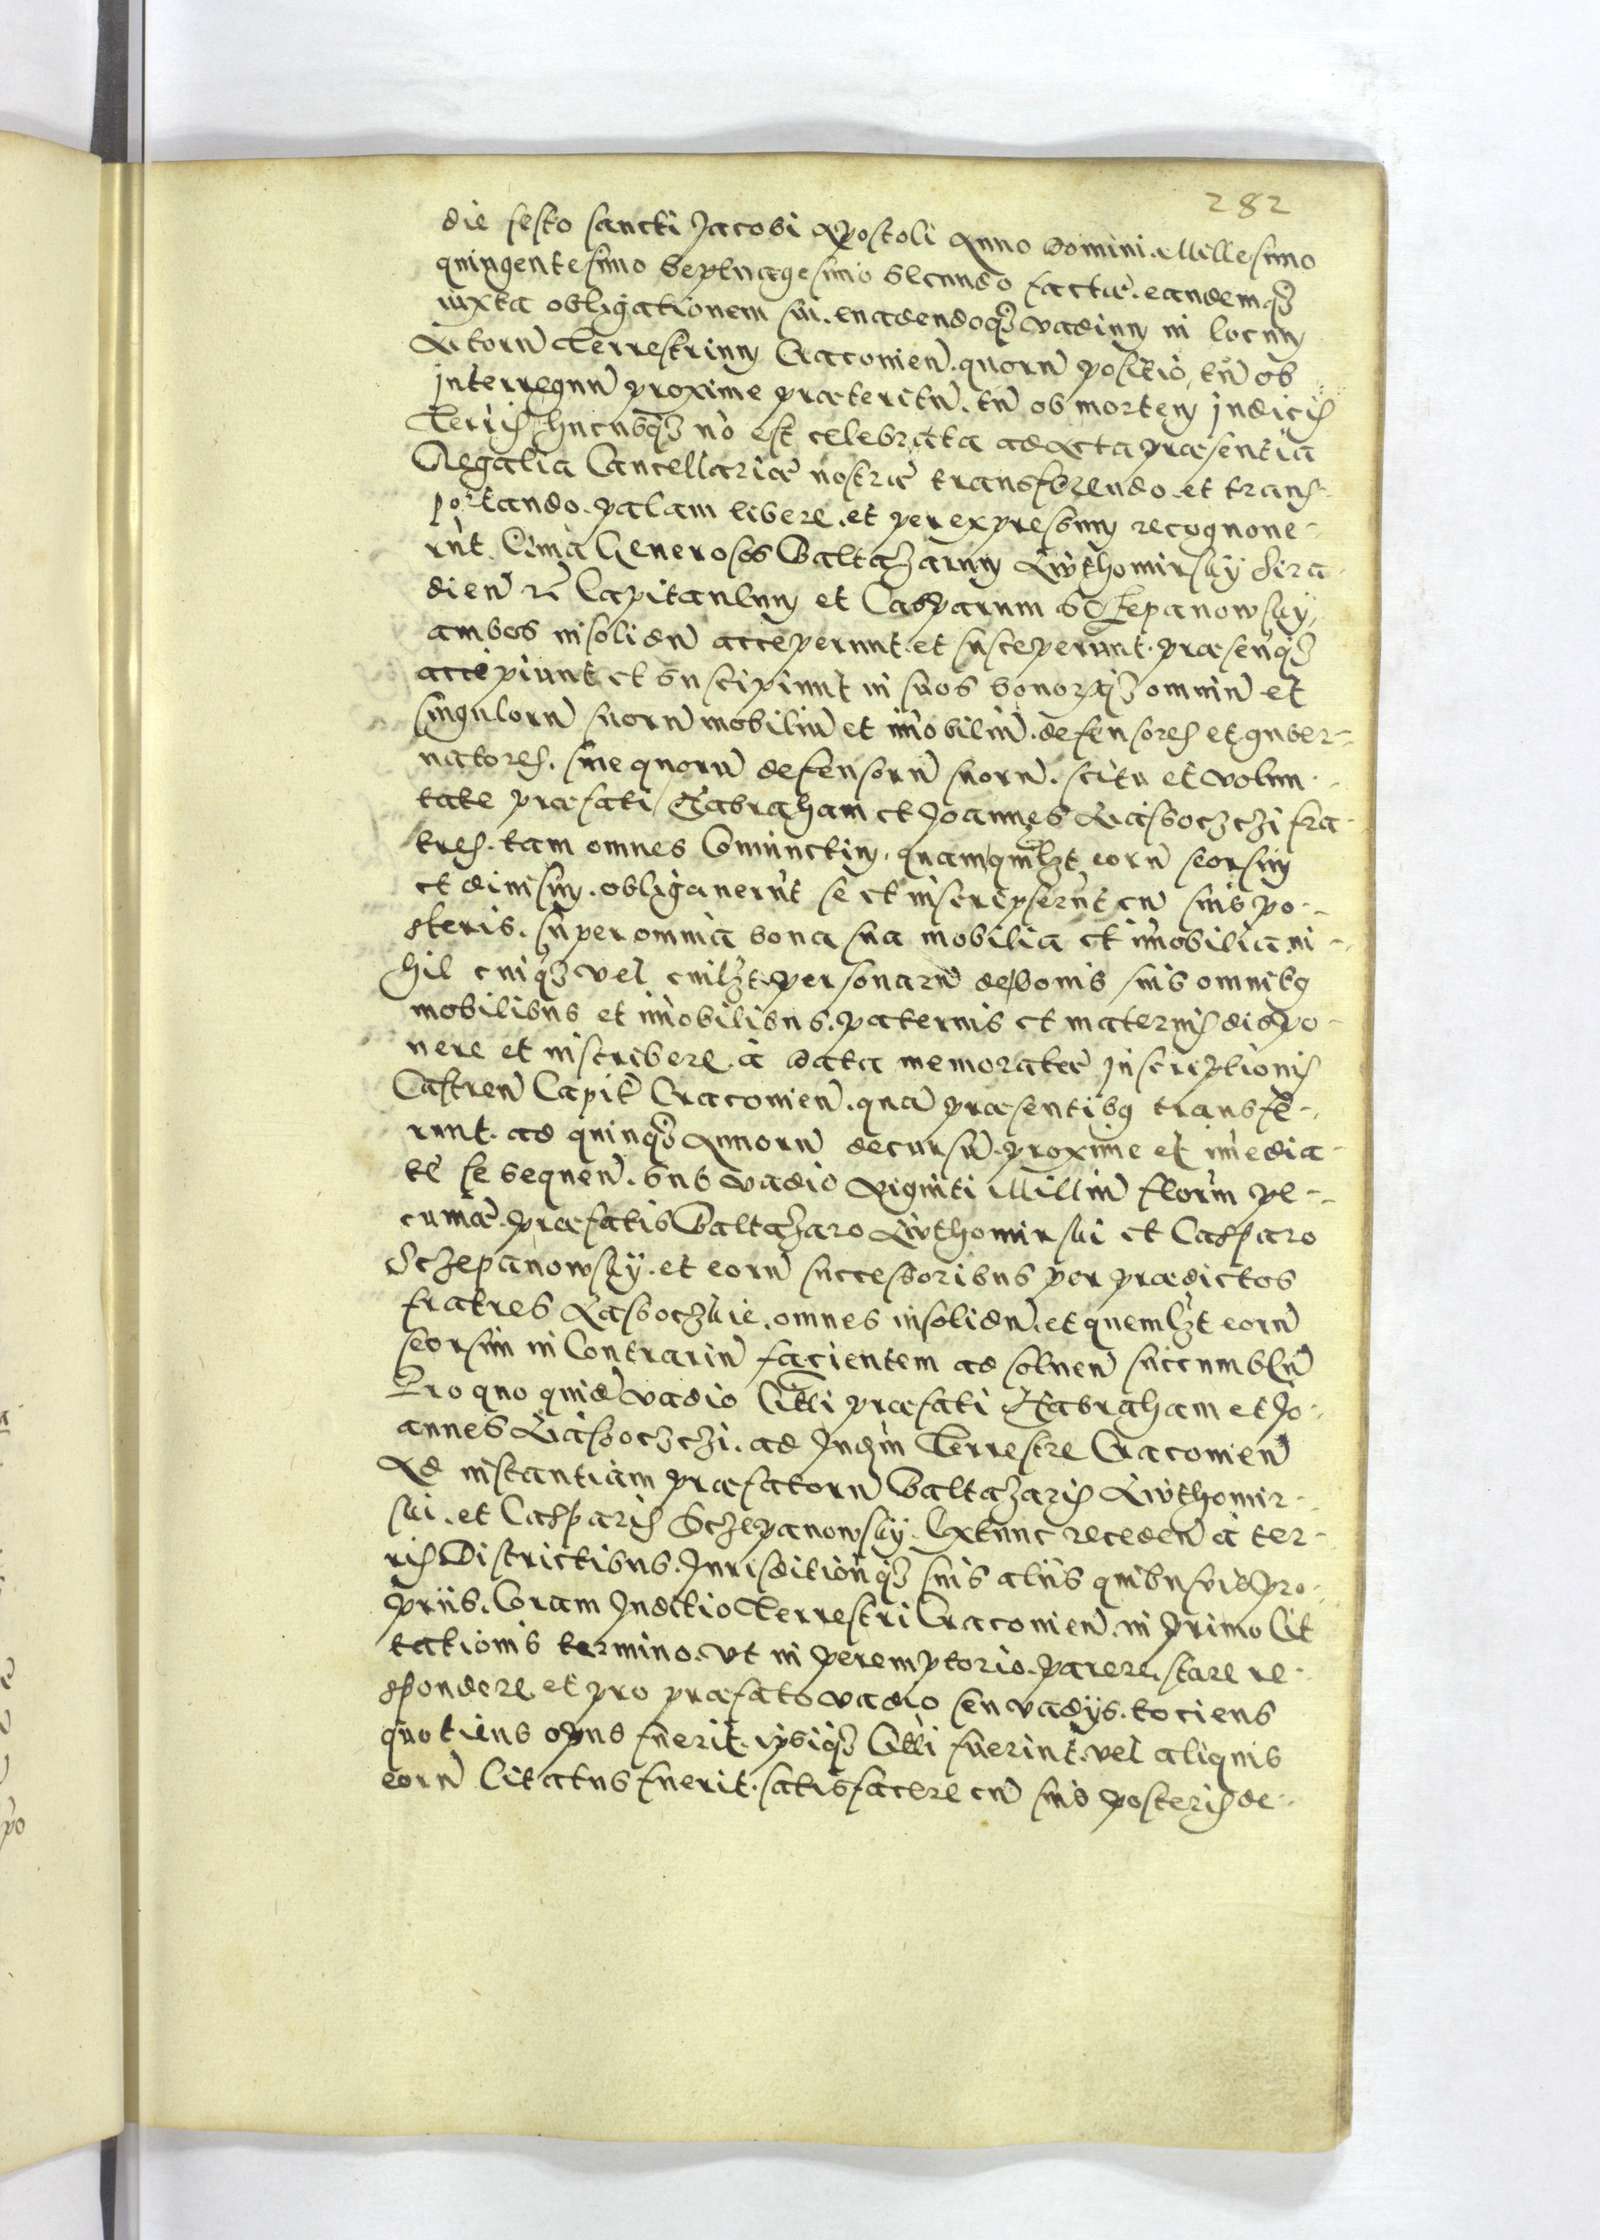 282
die festo sancti Jacobi Apostoli Anno Domini. Millesimo
quingentesimo Septuagesimo Secundo factae. eandemqз
iuxta obligationem sui. euadendoqз vadium in locum
Actorū Terrestrium Cracouien̄. quorū positio, tū ob
interregnū proxime praeteritū. tū ob mortem judicis
Terris hucusqз nō est celebrata ad Acta praesentia
Regalia Cancellariae nostrae transferendo. et trans-
portando. palam libere. et per expressum recognoue-
rūt. Quia Generosos Baltazarum Luthomirsky Sira-
dien̄ Capitaneum et Casparum Sczepanowsky,
ambos insolidū acceperunt. et susceperunt. praesenqз
accipiunt et suscipiunt in suos bonorqз omniū et
singulorū suorū mobiliū et im̄obiliū. defensores et guber-
natores. sine quorū defensorū suorū. scitu et volun-
tate praefati Abraham et Joannes Lassoczczi fra-
tres. tam omnes Coniunctim, quam qmlзt eorū seorsim
et diuisim. obligauerūt se et inscripserūt cū suis po-
steris. super omnia bona sua mobilia et im̄obilia. ni-
hil cuiqз vel cuilзt personarū de bonis suis omnibg
mobilibus et im̄obilibus. paternis et maternis dispo-
nere et inscribere. à data memoratae inscriptionis
Castren̄ Capit̄ Cracouien̄. quā praesentibg transfe-
runt. ad quinqз Annorū decursū. proxime et im̄edia-
te se sequen̄. sub vadio Viginti Milliū floren̄ pe-
cuniae. praefatis Baltazaro Luthomirski et Casparo
Sczepanowsky. et eorū successoribus per praedictos
fratres Lassoczkie. omnes insolidū. et quemlзt eorū
seorsim in Contrariū facientem ad soluen̄ succumben̄
Pro quo quidē vadio Citti praefati Abraham et Jo-
annes Lassoczczi. ad Judm̄ Terrestre Cracouien̄
Ad instantiam praefatorū Baltazaris Luthomir-
ski. et Casparis Sczepanowsky. Extunc receden̄ à ter-
ris Districtibus. Jurisditionqз suis aliis quibusuis pro-
priis. Coram Juditio Terrestri Cracouien̄. in primo Cit
tationis termino. vt in peremptorio. parere, stare re-
spondere. et pro praefato vadio seu vadijs. tociens
quotiens opus fuerit. ipsiqз Citti fuerint. vel aliquis
eorū Citatus fuerit. satisfacere cū suis posteris de-